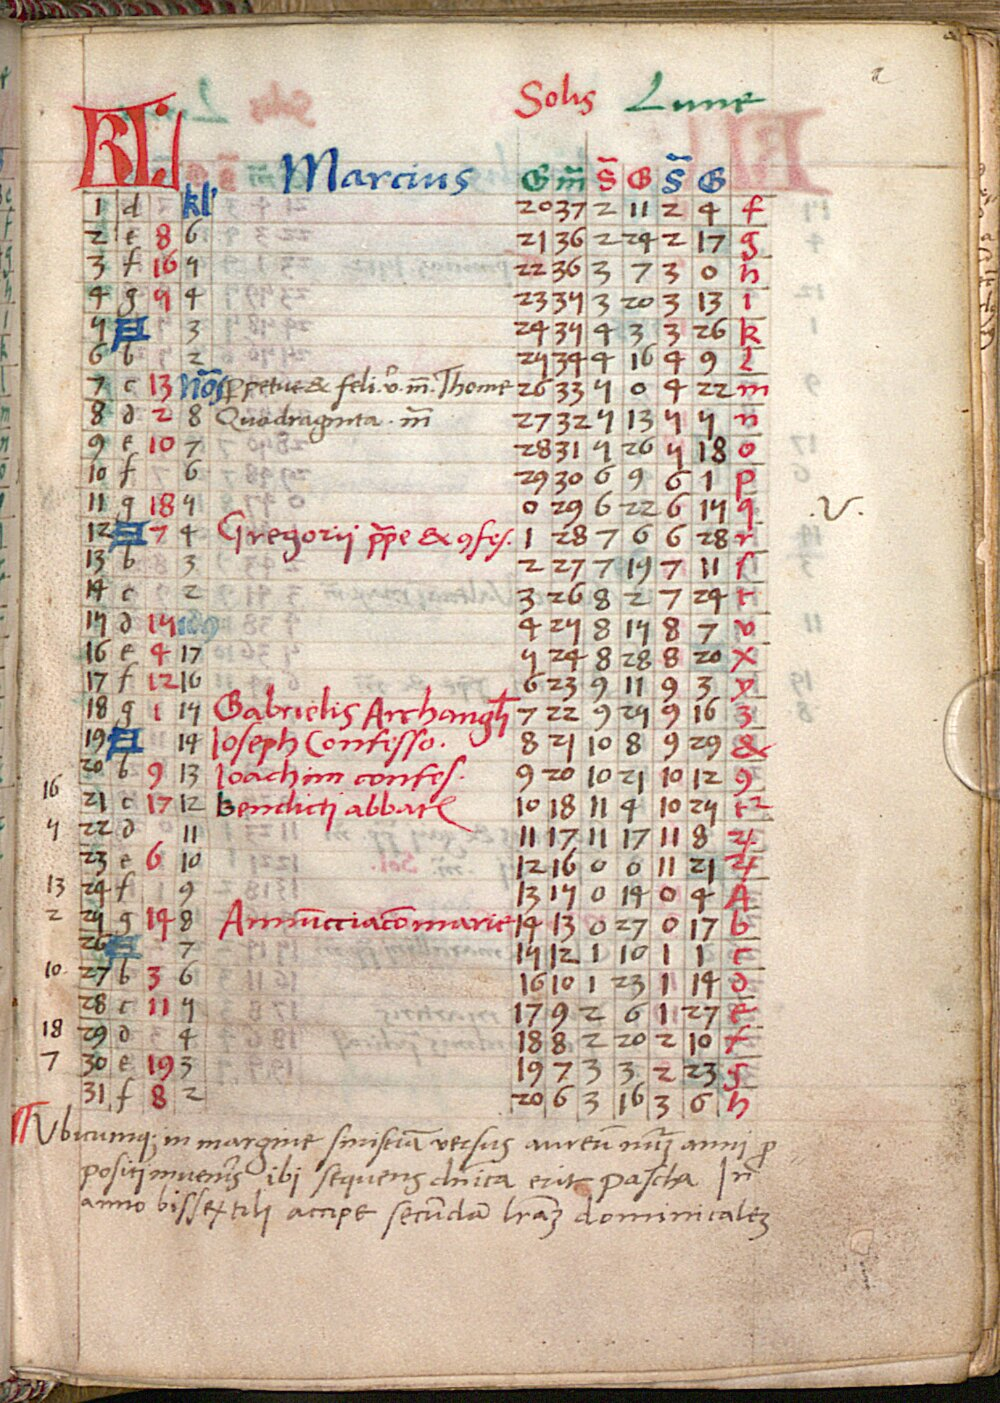 Solis Lune
KL Marcius G m̄ S̄ G S̄ G
1 d kl' 20 37 2 11 2 4 f
2 e 8 6 21 36 2 24 2 17 g
3 f 16 5 22 36 3 7 3 0 h
4 g 5 4 23 35 3 20 3 13 i
5 A 3 24 35 4 3 3 26 k
6 b 2 25 34 4 16 4 9 l
7 c 13 Nōs Ꝑpetue & feli. v. m̄. Thome 26 33 5 0 4 22 m
8 d 2 8 Quadraginta . m̄ 27 32 5 13 5 5 n
9 e 10 7 28 31 5 26 5 18 o
10 f 6 29 30 6 9 6 1 p
11 g 18 5 0 29 6 22 6 15 q .V.
12 A 7 4 Gregorij p̄pe & ꝯfes. 1 28 7 6 6 28 r
13 b 3 2 27 7 19 7 11 ſ
14 c 2 3 26 8 2 7 24 t
15 d 15 4 25 8 15 8 7 v
16 e 4 17 5 24 8 28 8 20 x
17 f 12 16 6 23 9 11 9 3 y
18 g 1 15 Gabrielis Archangl̄i 7 22 9 25 9 16 z
19 A 14 Ioseph Confesso. 8 21 10 8 9 29 &
20 b 9 13 Ioachim confes. 9 20 10 21 10 12 ꝯ
16 21 c 17 12 Bendicti abbatis 10 18 11 4 10 25
5 22 d 11 11 17 11 17 11 8
23 e 6 10 12 16 0 0 11 21
13 24 f 9 13 15 0 14 0 4 A
2 25 g 14 8 Annūcciac̄o marie 14 13 0 27 0 17 b
26 A 7 15 12 1 10 1 1 c
10. 27 b 3 6 16 10 1 23 1 14 d
28 c 11 5 17 9 2 6 1 27 e
18 29 d 4 18 8 2 20 2 10 f
7 30 e 19 3 19 7 3 3 2 23 g
31 f 8 2 20 6 3 16 3 6 h
¶ Vbicumqꝫ in margine sinistrā versus aureū nūꝫ anni ꝓ
positi inueneris ibi sequens dnica erit pascha In
anno bissextili accipe secūdā lrāꝫ dominicaleꝫ